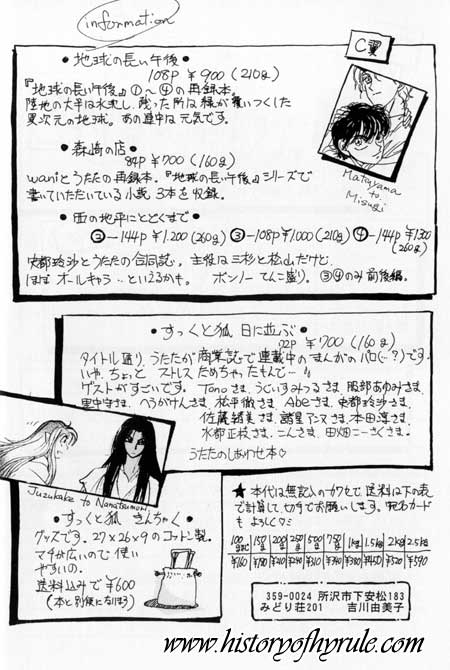 information
C翼
• 地球の長い午後 •
108P ¥900 (210g)
『地球の長い午後』①〜④の再録本。
陸地の大半は水没し、残った所は緑が覆いつくした
異次元の地球。あの連中は元気です。
Matsuyama
to
Misugi
• 森崎の店 •
84P ¥700 (160g)
waniとうたたの再録本。『地球の長い午後』シリーズで
書いていただいている小説 3本を収録。
• 西の地平にとどくまで •
②—144P ¥1.200 (260g) ③—108P ¥1000 (210g) ④—144P ¥1300
(260g)
史都玲沙とうたたの合同誌。主役は三杉と松山だけど
ほぼ オールキャラ…といえるかも。 ボンノー てんこ盛り。 ③④のみ 前後編。
• すっくと狐 日に並ぶ •
92P ¥700 (160g)
タイトル通り、うたたが商業誌で連載中のまんがのパロ(…?)です。
いや、ちょっと ストレス ためちゃったもんで…。
ゲストがすごいです。 Tonoさま、うぐいすみつるさま、阿部あゆみさま、
里中守さま、へうがけんさま、松平徹さま、Abeさま、史都玲沙さま、
佐藤綾美さま、諸星アンヌさま、本田淳さま、
水都正枝さま、こんさま、田畑こーさくさま。
うたたのしあわせ本♡
Juzukake to Nanatsumori
• すっくと狐 きんちゃく •
グッズです。27×26×9のコットン製。
マチが広いので使い
やすいの。
送料込みで ¥600
(本と別便になります)
★ 本代は無記入の小為替で、送料は下の表
で計算して、切手でお願いします。宛名カード
も よろしく♡
100gまで 150g 200g 250g 500g 750g 1kg 1.5kg 2kg 2.5kg
¥160 ¥180 ¥210 ¥240 ¥310 ¥340 ¥380 ¥450 ¥520 ¥590
359-0024 所沢市下安松183
みどり荘201 吉川由美子
www.historyofhyrule.com